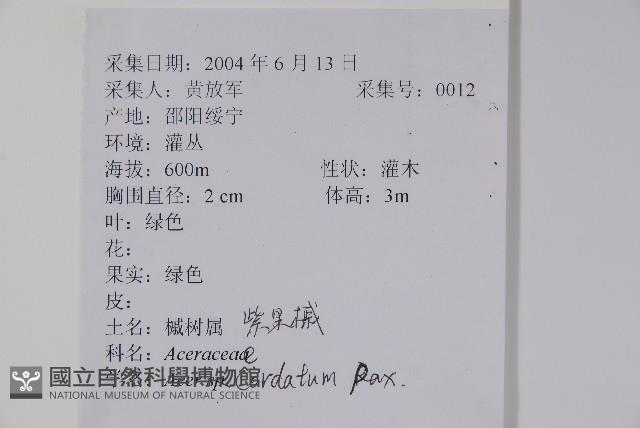 采集日期：2004 年 6 月 13 日
采集人：黄放军 采集号：0012
产地：邵阳绥宁
环境：灌丛
海拔：600m 性状：灌木
胸围直径：2 cm 体高：3m
叶：绿色
花：
果实：绿色
皮：
土名：槭树属 紫果槭
科名：Aceraceae
Acer cordatum Pax.
國立自然科學博物館
NATIONAL MUSEUM OF NATURAL SCIENCE